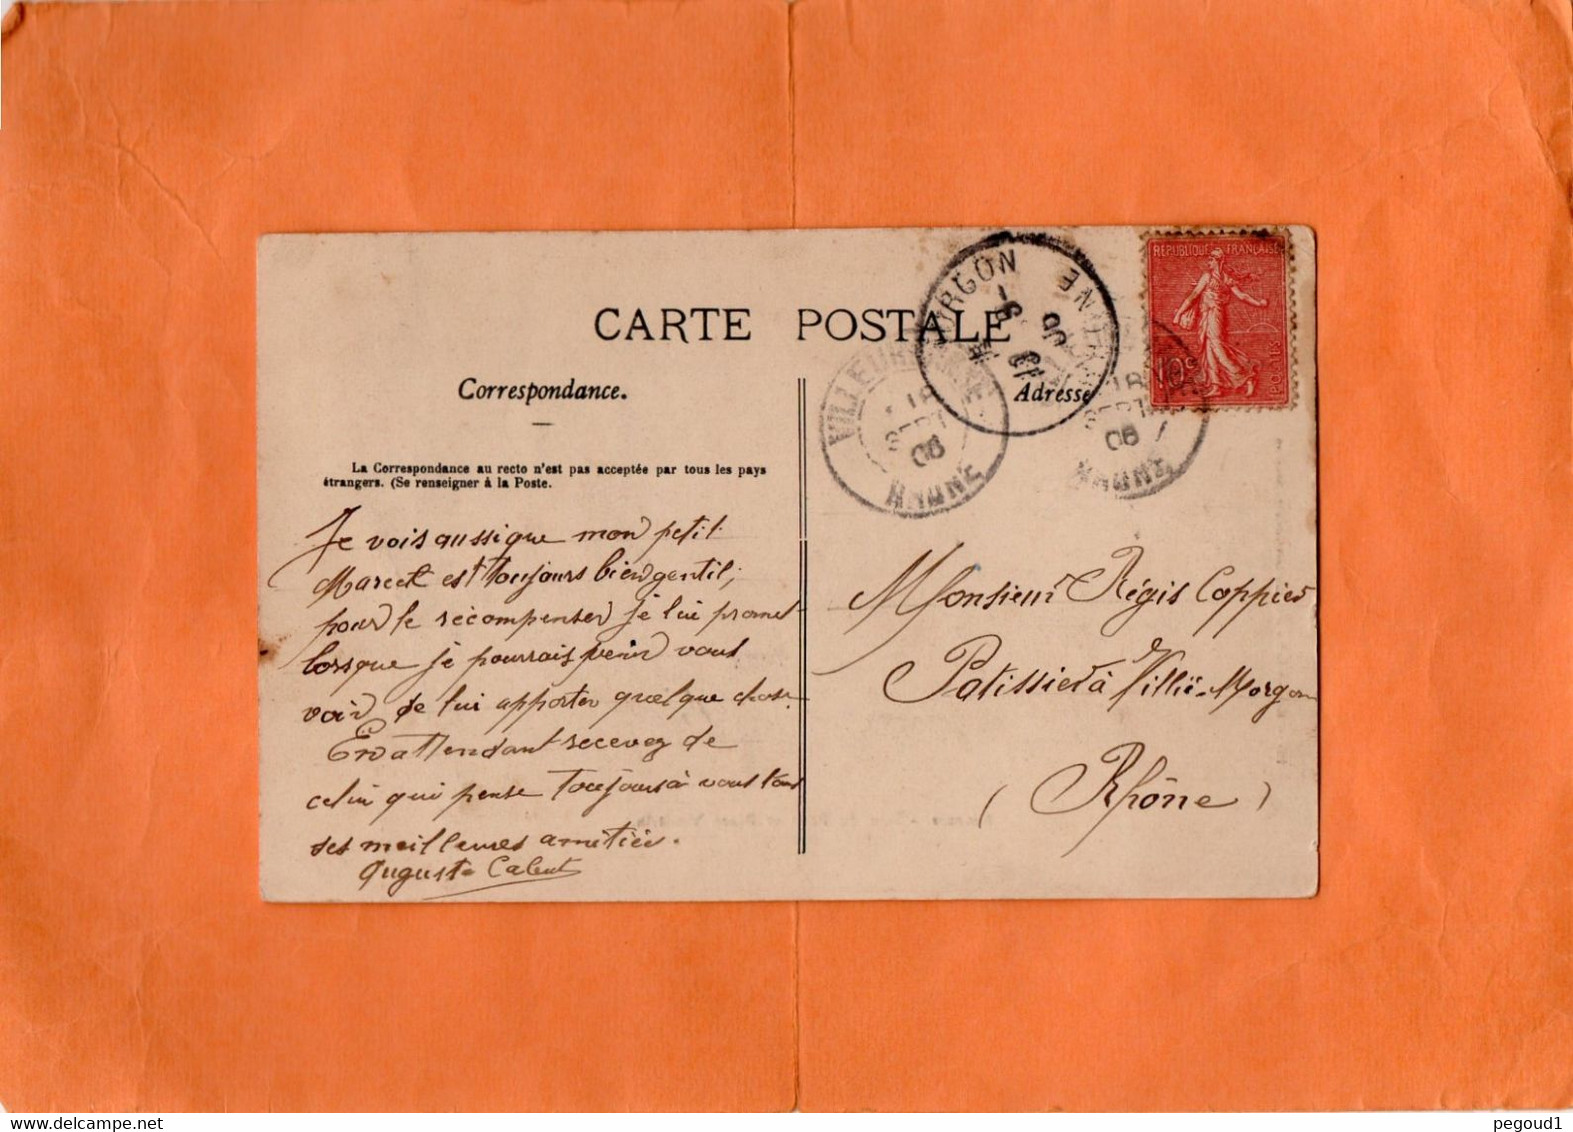 CARTE POSTALE
Correspondance.
Adresse
La Correspondance au recto n'est pas acceptée par tous les pays
étrangers. (Se renseigner à la Poste.
REPUBLIQUE FRANÇAISE
10c
POSTES
VILLEURBANNE
18
SEPT
06
RHONE
18
SEPT
06
RHONE
MORGON
19
06
Je vois aussi que mon petit
Marcel est toujours bien gentil,
pour le récompenser je lui promet
lorsque je pourrais venir vous
voir de lui apporter quelque chose.
En attendant recevez de
celui qui pense toujours à vous tous
ses meilleures amitiés.
Auguste
Monsieur Régis Coppier
Patissier à Villié-Morgon
(Rhône)
www.delcampe.net
pegoud1